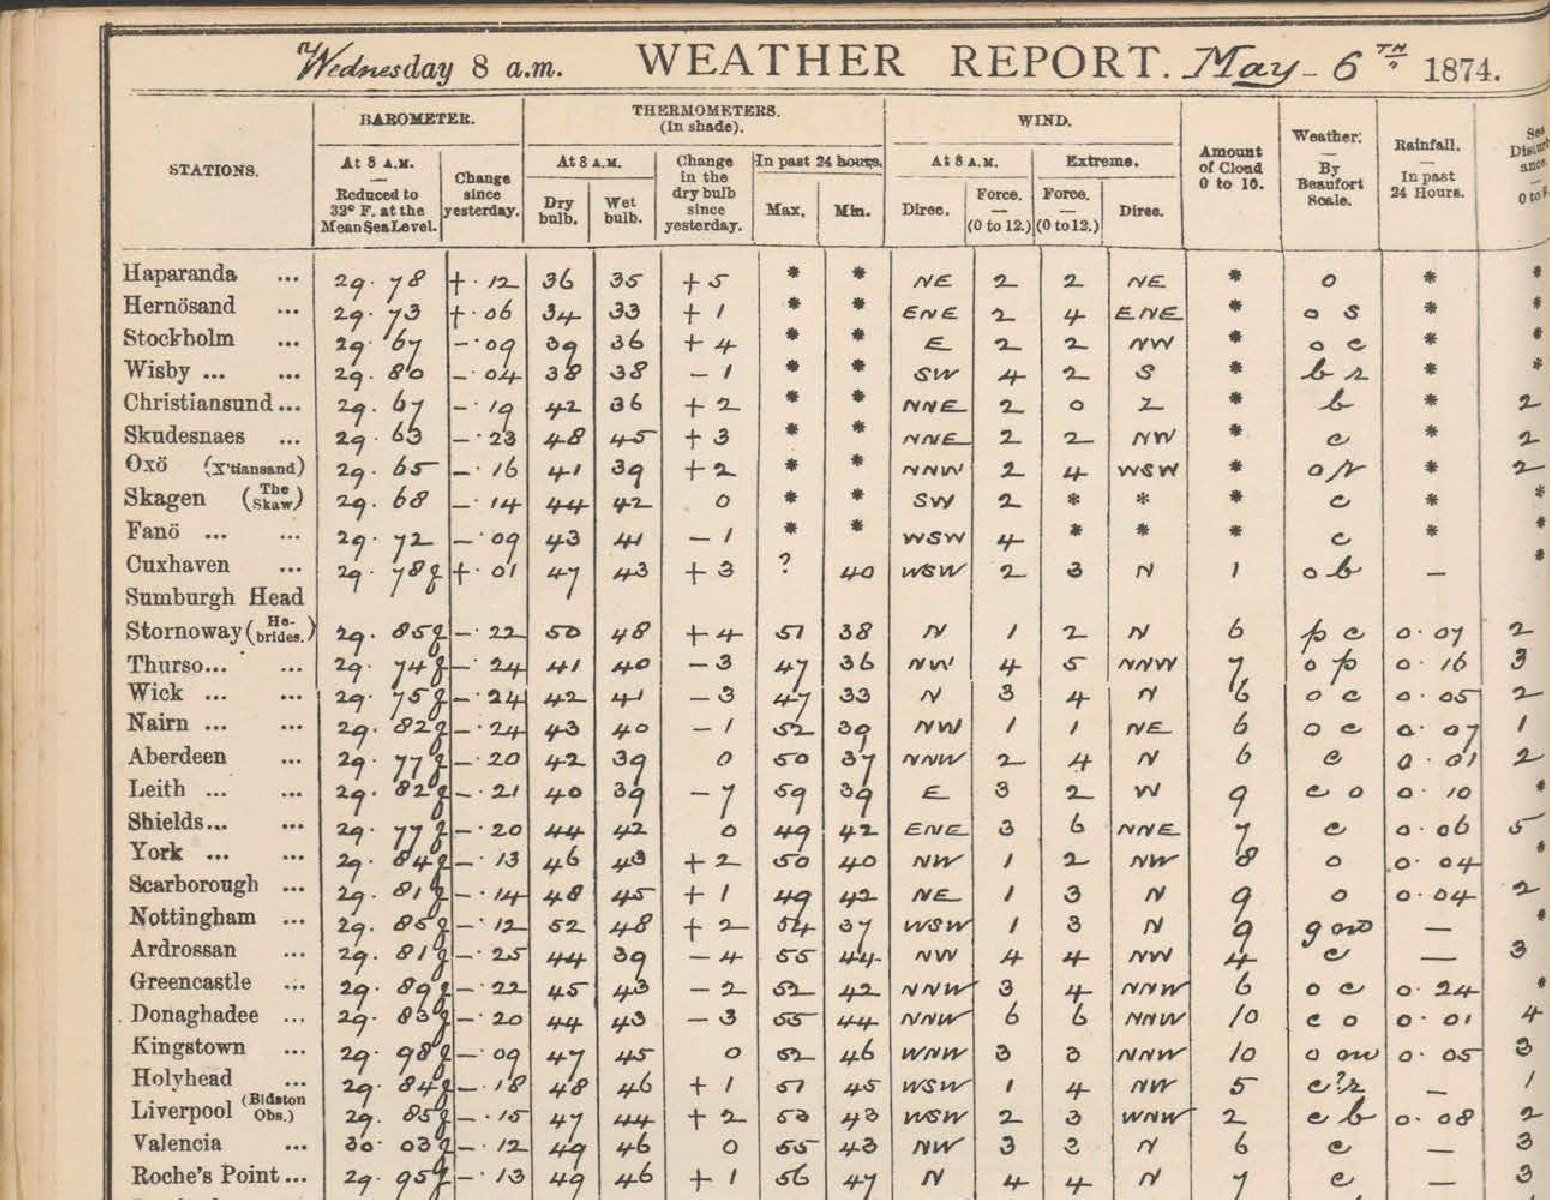 Wednesday 8 a.m. WEATHER REPORT. May 6TH 1874.
STATIONS. BAROMETER. THERMOMETERS. (In shade). WIND. Amount of Cloud 0 to 10. Weather. — By Beaufort Scale. Rainfall. — In past 24 Hours.
At 8 A.M. — Reduced to 32° F. at the Mean Sea Level. Change since yesterday. At 8 A.M. Dry bulb. Wet bulb. Change in the dry bulb since yesterday. In past 24 hours. Max. Min. At 8 A.M. Direc. Force. — (0 to 12.) Extreme. Force. — (0 to 12.) Direc.
Haparanda ... 29.78 +.12 36 35 +5 * * NE 2 2 NE * o * *
Hernösand ... 29.73 +.06 34 33 +1 * * ENE 2 4 ENE * o s * *
Stockholm ... 29.67 -.09 39 36 +4 * * E 2 2 NW * o c * *
Wisby ... ... 29.80 -.04 38 38 -1 * * SW 4 2 S * b * *
Christiansund ... 29.67 -.19 42 36 +2 * * NNE 2 0 Z * b * 2
Skudesnaes ... 29.63 -.23 48 45 +3 * * NNE 2 2 NW * c * 2
Oxö (X'tiansand) 29.65 -.16 41 39 +2 * * NNW 2 4 WSW * o r * 2
Skagen (The Skaw) 29.68 -.14 44 42 0 * * SW 2 * * * c * *
Fanö ... ... 29.72 -.09 43 41 -1 * * WSW 4 * * * c * *
Cuxhaven ... 29.78g +.01 47 43 +3 ? 40 WSW 2 3 N 1 o b — *
Sumburgh Head
Stornoway (Hebrides.) 29.85g -.22 50 48 +4 51 38 N 1 2 N 6 p c 0.07 2
Thurso... ... 29.74g -.24 41 40 -3 47 36 NW 4 5 NNW 7 o p 0.16 3
Wick ... ... 29.75g -.24 42 41 -3 47 33 N 3 4 N 6 o c 0.05 2
Nairn ... ... 29.82g -.24 43 40 -1 52 39 NW 1 1 NE 6 o c 0.07 1
Aberdeen ... 29.77g -.20 42 39 0 50 37 NNW 2 4 N 6 c 0.01 2
Leith ... ... 29.82g -.21 40 39 -7 59 39 E 3 2 W 9 c o 0.10 *
Shields... ... 29.77g -.20 44 42 0 49 42 ENE 3 6 NNE 7 c 0.06 5
York ... ... 29.84g -.13 46 43 +2 50 40 NW 1 2 NW 8 o 0.04 *
Scarborough ... 29.81g -.14 48 45 +1 49 42 NE 1 3 N 9 o 0.04 2
Nottingham ... 29.85g -.12 52 48 +2 54 37 WSW 1 3 N 9 g — *
Ardrossan ... 29.81g -.25 44 39 -4 55 44 NW 4 4 NW 4 c — 3
Greencastle ... 29.89g -.22 45 43 -2 52 42 NNW 3 4 NNW 6 o c 0.24 *
Donaghadee ... 29.83g -.20 44 43 -3 55 44 NNW 6 6 NNW 10 c o 0.01 4
Kingstown ... 29.98g -.09 47 45 0 52 46 WNW 3 3 NNW 10 o 0.05 3
Holyhead ... 29.84g -.18 48 46 +1 51 45 WSW 1 4 NW 5 — 1
Liverpool (Bidston Obs.) 29.85g -.15 47 44 +2 53 43 WSW 2 3 WNW 2 c b 0.08 2
Valencia ... 30.03g -.12 49 46 0 55 43 NW 3 3 N 6 c — 3
Roche's Point ... 29.95g -.13 49 46 +1 56 47 N 4 4 N 7 c — 3